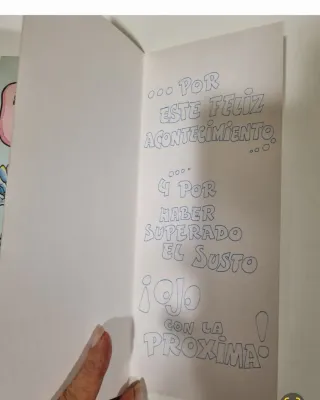 ... POR
ESTE FELIZ
ACONTECIMIENTO
...
....
Y POR
HABER
SUPERADO
EL SUSTO
¡OJO
CON LA
PROXIMA!